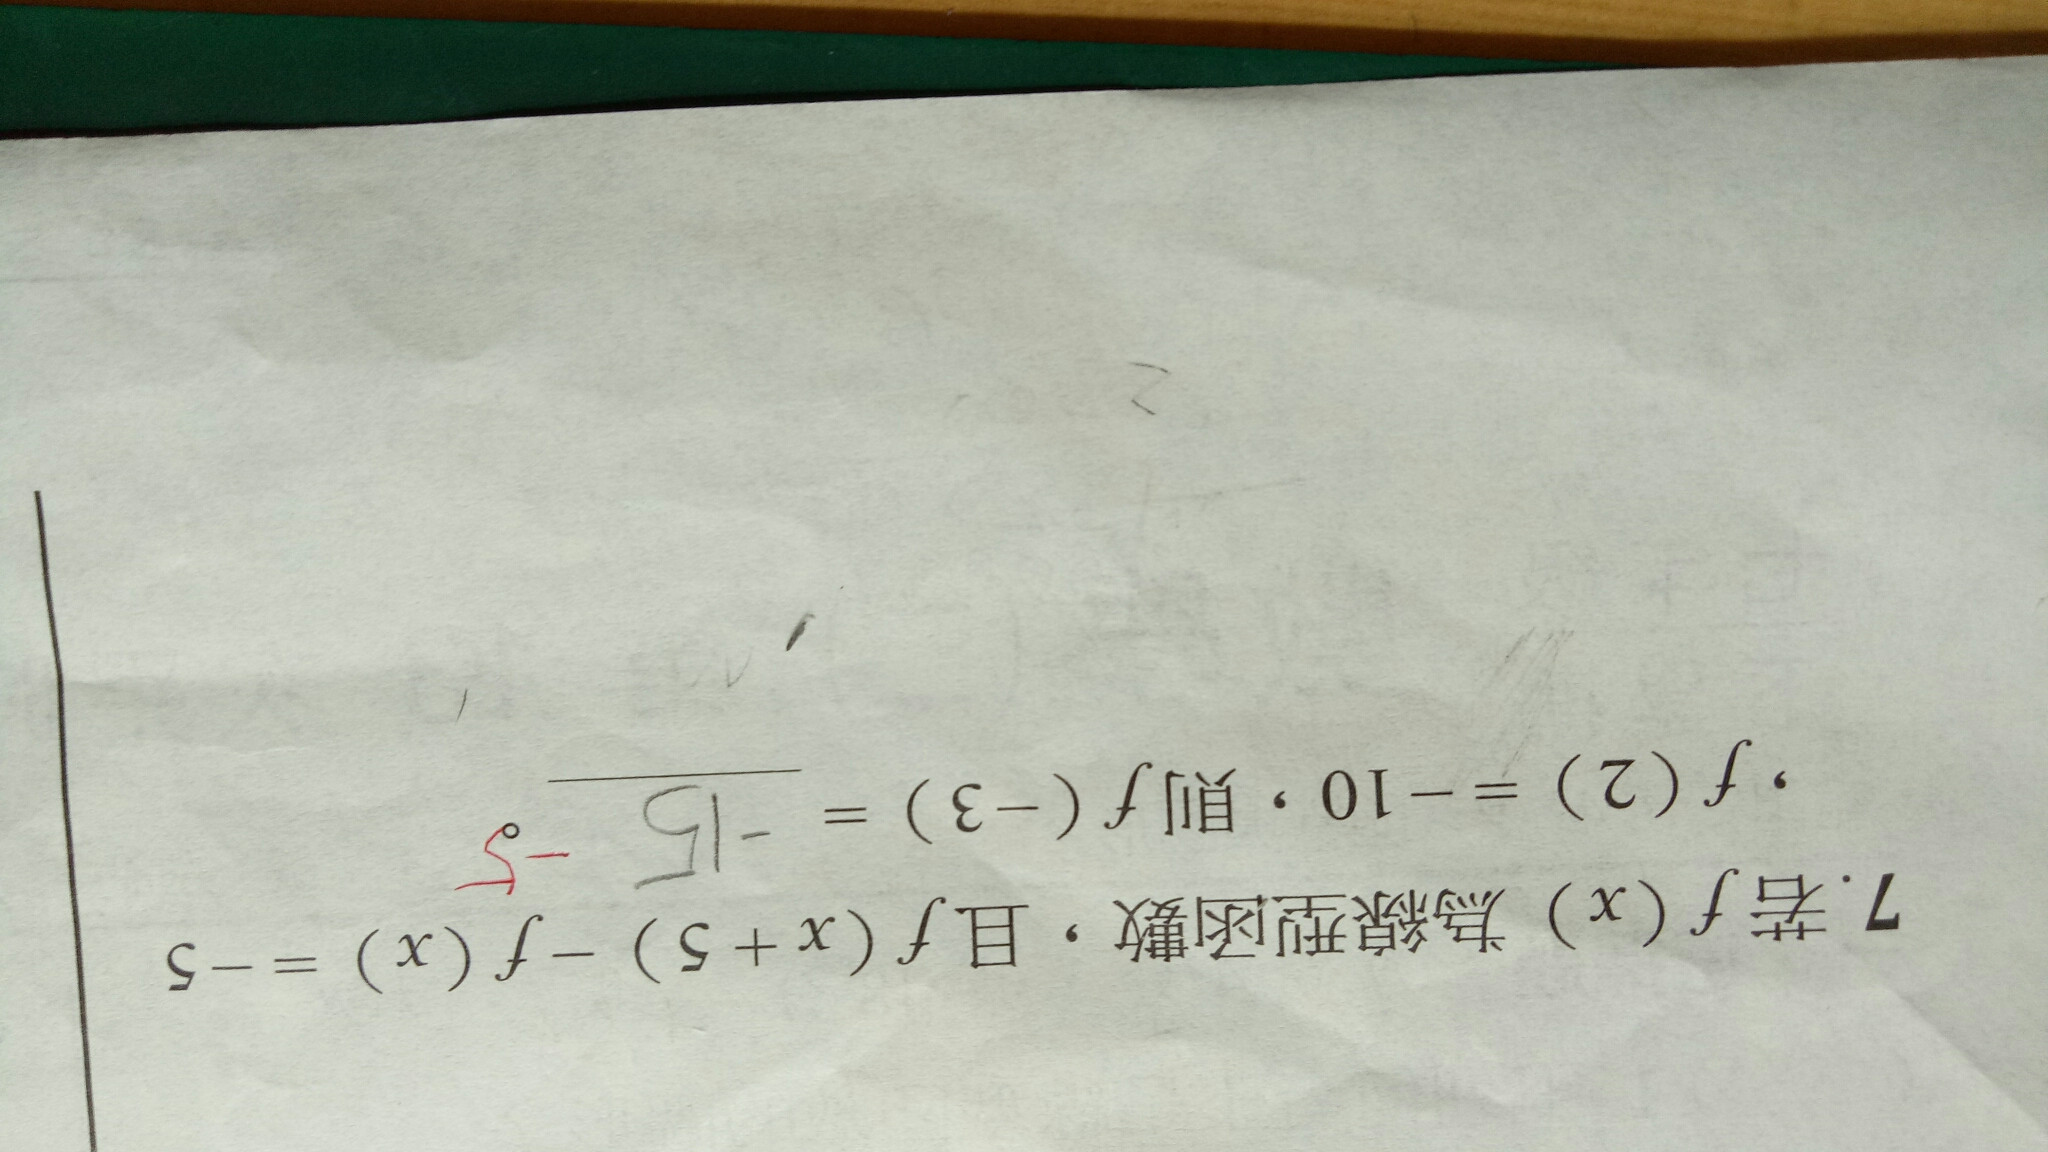 7. 若 f(x) 為線型函數，且 f(x+5)-f(x)=-5
，f(2)=-10，則 f(-3)= -15 -5